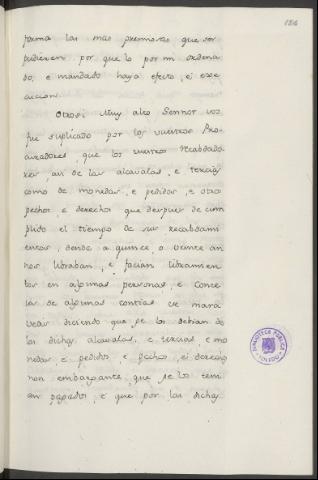 186
forma las mas premiosas que ser
pudiesen por que lo por mi ordena
do, e mandado haya efecto, ei exe
accion.
Otrosi Muy alto Sennor vos
fue suplicado por los vuestros Pro
curadores, que los vuestros Recabdado
res, asi de las alcavalas, e tercias
como de monedas, e pedidos, e otros
pechos, e derechos que despues de cum
plido el tiempo de sus recabdami
entos, dende a quince, o veinte an
nos libraban, e facian libramien
tos en algunas personas, e conce
jos de algunas contias de mara
vedis diciendo que se los debian de
las dichas alcavalas, e tercias, e mo
nedas, e pedidos, e pechos, ei derechos
non embargante, que se los teni
an pagados, e que por las dichas
BIBLIOTECA PUBLICA
TOLEDO